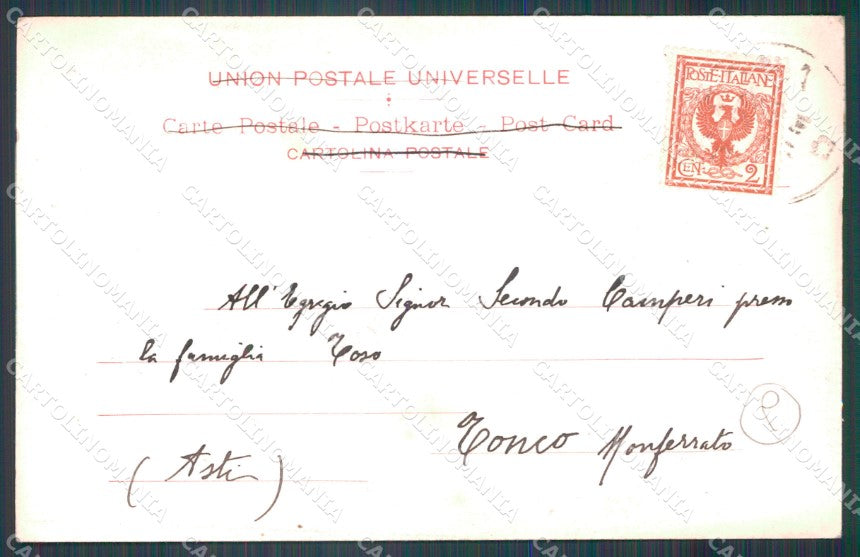 UNION POSTALE UNIVERSELLE
Carte Postale - Postkarte - Post Card
CARTOLINA POSTALE
POSTE·ITALIANE
CEN. 2
All'Egregio Signor Secondo Camperi presso
la famiglia Toso
Tonco Monferrato
(Asti)
CARTOLINOMANIA